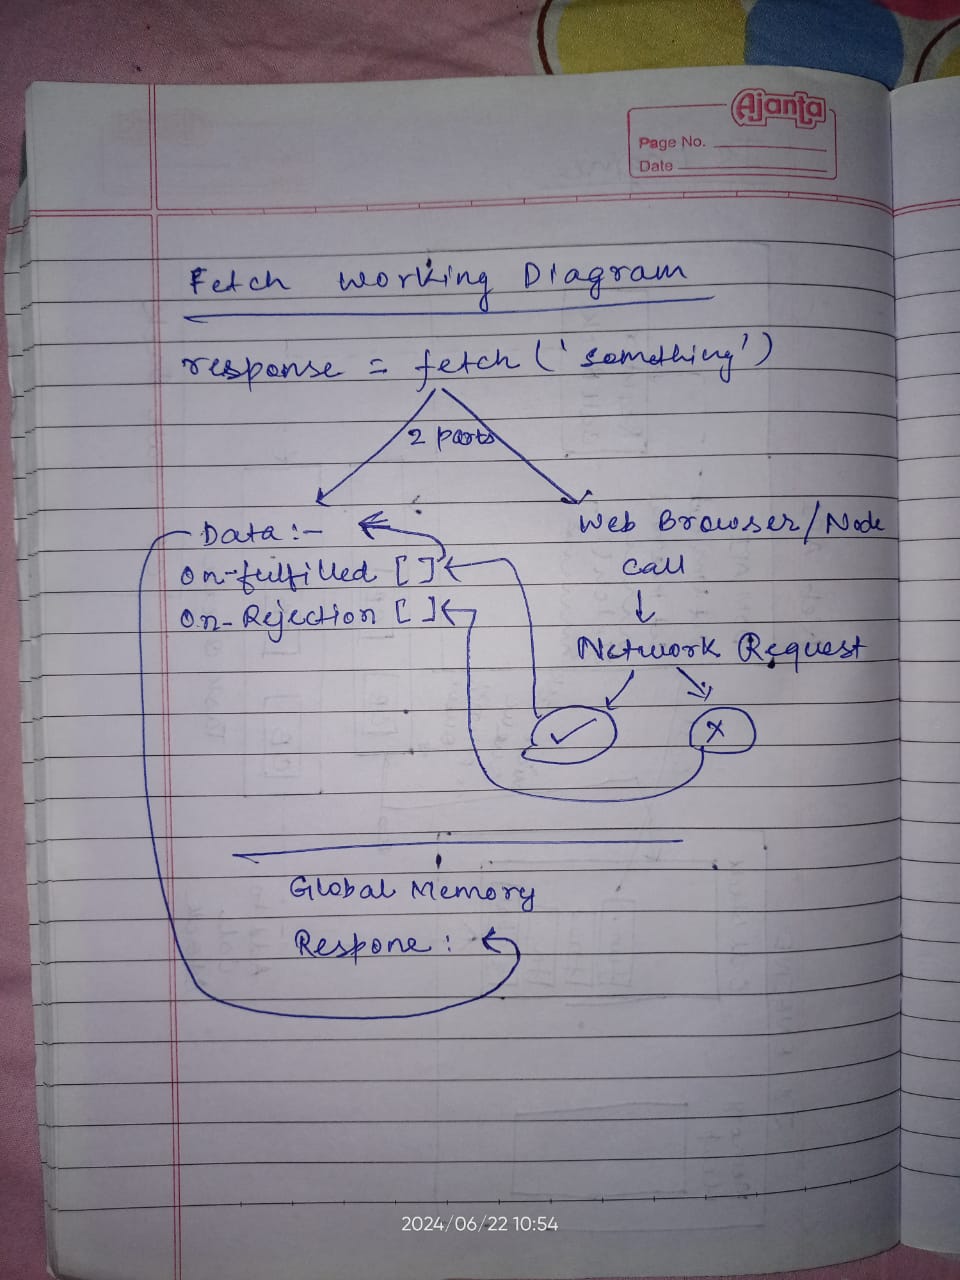 Ajanta
Page No.
Date
Fetch Working Diagram
response = fetch ('something')
2 parts
Data :-
On-fulfilled [ ]
On-Rejection [ ]
Web Browser/Node
Call
Network Request
✓
X
Global Memory
Respone :
2024/06/22 10:54